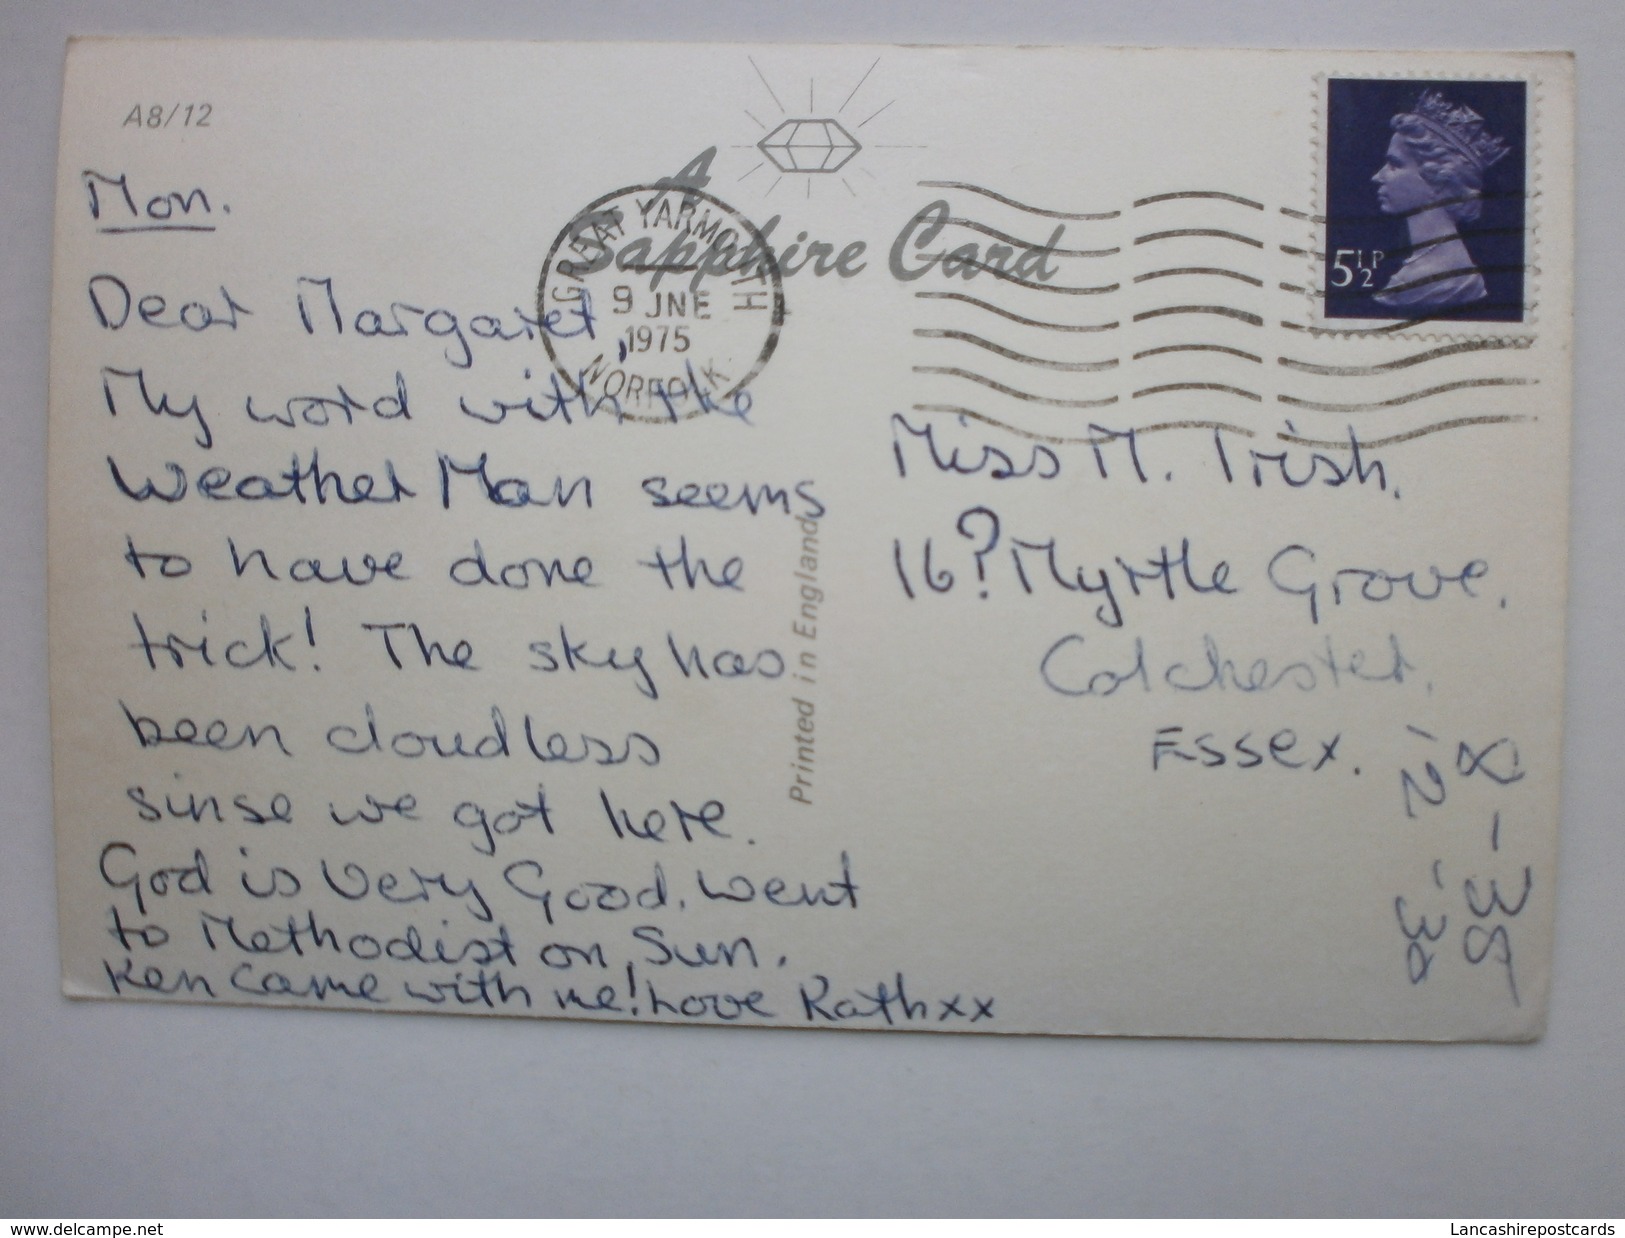 A8/12
A
Sapphire Card
GREAT YARMOUTH
9 JNE
1975
NORFOLK
5½P
Mon.
Dear Margaret,
My word with the
Weather Man seems
to have done the
trick! The sky has
been cloudless
sinse we got here.
God is Very Good. Went
to Methodist on Sun.
Ken came with me! Love Kath xx
Printed in England
Miss M. Irish.
16? Myrtle Grove.
Colchester.
Essex.
www.delcampe.net
Lancashirepostcards